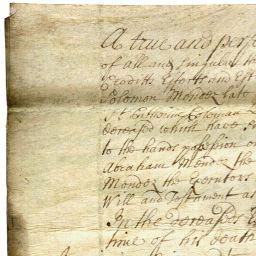 A true and perf
of all and singular the
Creditts Effects and Est
Solomon Mendez late
St Catherine
deceased which have
to the hands possession or
Abraham Mendez the
Mendez the Executors
Will and Testament as
In the deceased's
time of his death